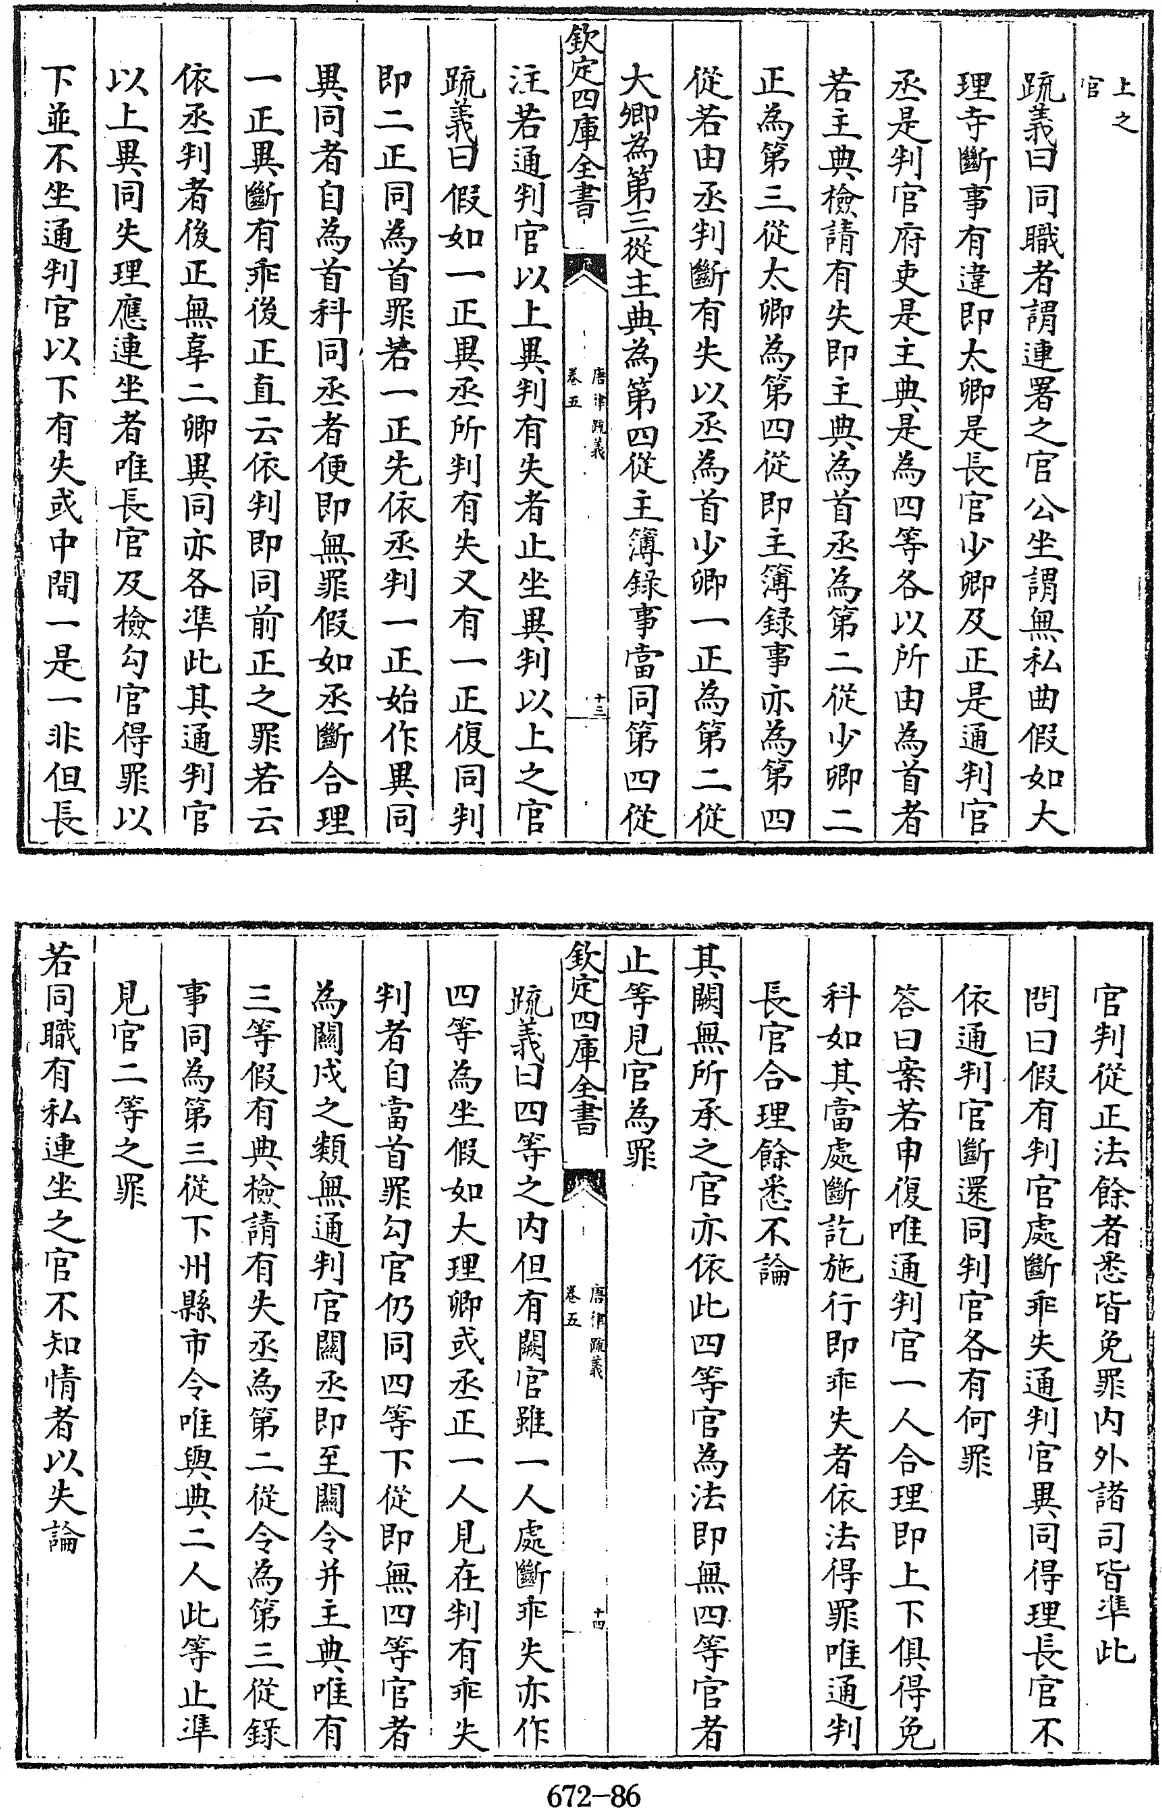 上之
官
疏義曰同職者謂連署之官公坐謂無私曲假如大
理寺斷事有違即大卿是長官少卿及正是通判官
丞是判官府吏是主典是為四等各以所由為首者
若主典檢請有失即主典為首丞為第二從少卿二
正為第三從大卿為第四從即主簿録事亦為第四
從若由丞判斷有失以丞為首少卿一正為第二從
大卿為第三從主典為第四從主簿録事當同第四從
欽定四庫全書
唐律疏義
卷五
十三
注若通判官以上異判有失者止坐異判以上之官
疏義曰假如一正異丞所判有失又有一正復同判
即二正同為首罪若一正先依丞判一正始作異同
異同者自為首科同丞者便即無罪假如丞斷合理
一正異斷有乖後正直云依判即同前正之罪若云
依丞判者後正無辜二卿異同亦各準此其通判官
以上異同失理應連坐者唯長官及檢勾官得罪以
下並不坐通判官以下有失或中間一是一非但長
官判從正法餘者悉皆免罪内外諸司皆準此
問曰假有判官處斷乖失通判官異同得理長官不
依通判官斷還同判官各有何罪
答曰案若申復唯通判官一人合理即上下俱得免
科如其當處斷訖施行即乖失者依法得罪唯通判
長官合理餘悉不論
其闕無所承之官亦依此四等官為法即無四等官者
止等見官為罪
欽定四庫全書
唐律疏義
卷五
十四
疏義曰四等之内但有闕官雖一人處斷乖失亦作
四等為坐假如大理卿或丞正一人見在判有乖失
判者自當首罪勾官仍同四等下從即無四等官者
為關戍之類無通判官關丞即至關令并主典唯有
三等假有典檢請有失丞為第二從令為第三從録
事同為第三從下州縣市令唯與典二人此等止準
見官二等之罪
若同職有私連坐之官不知情者以失論
672-86